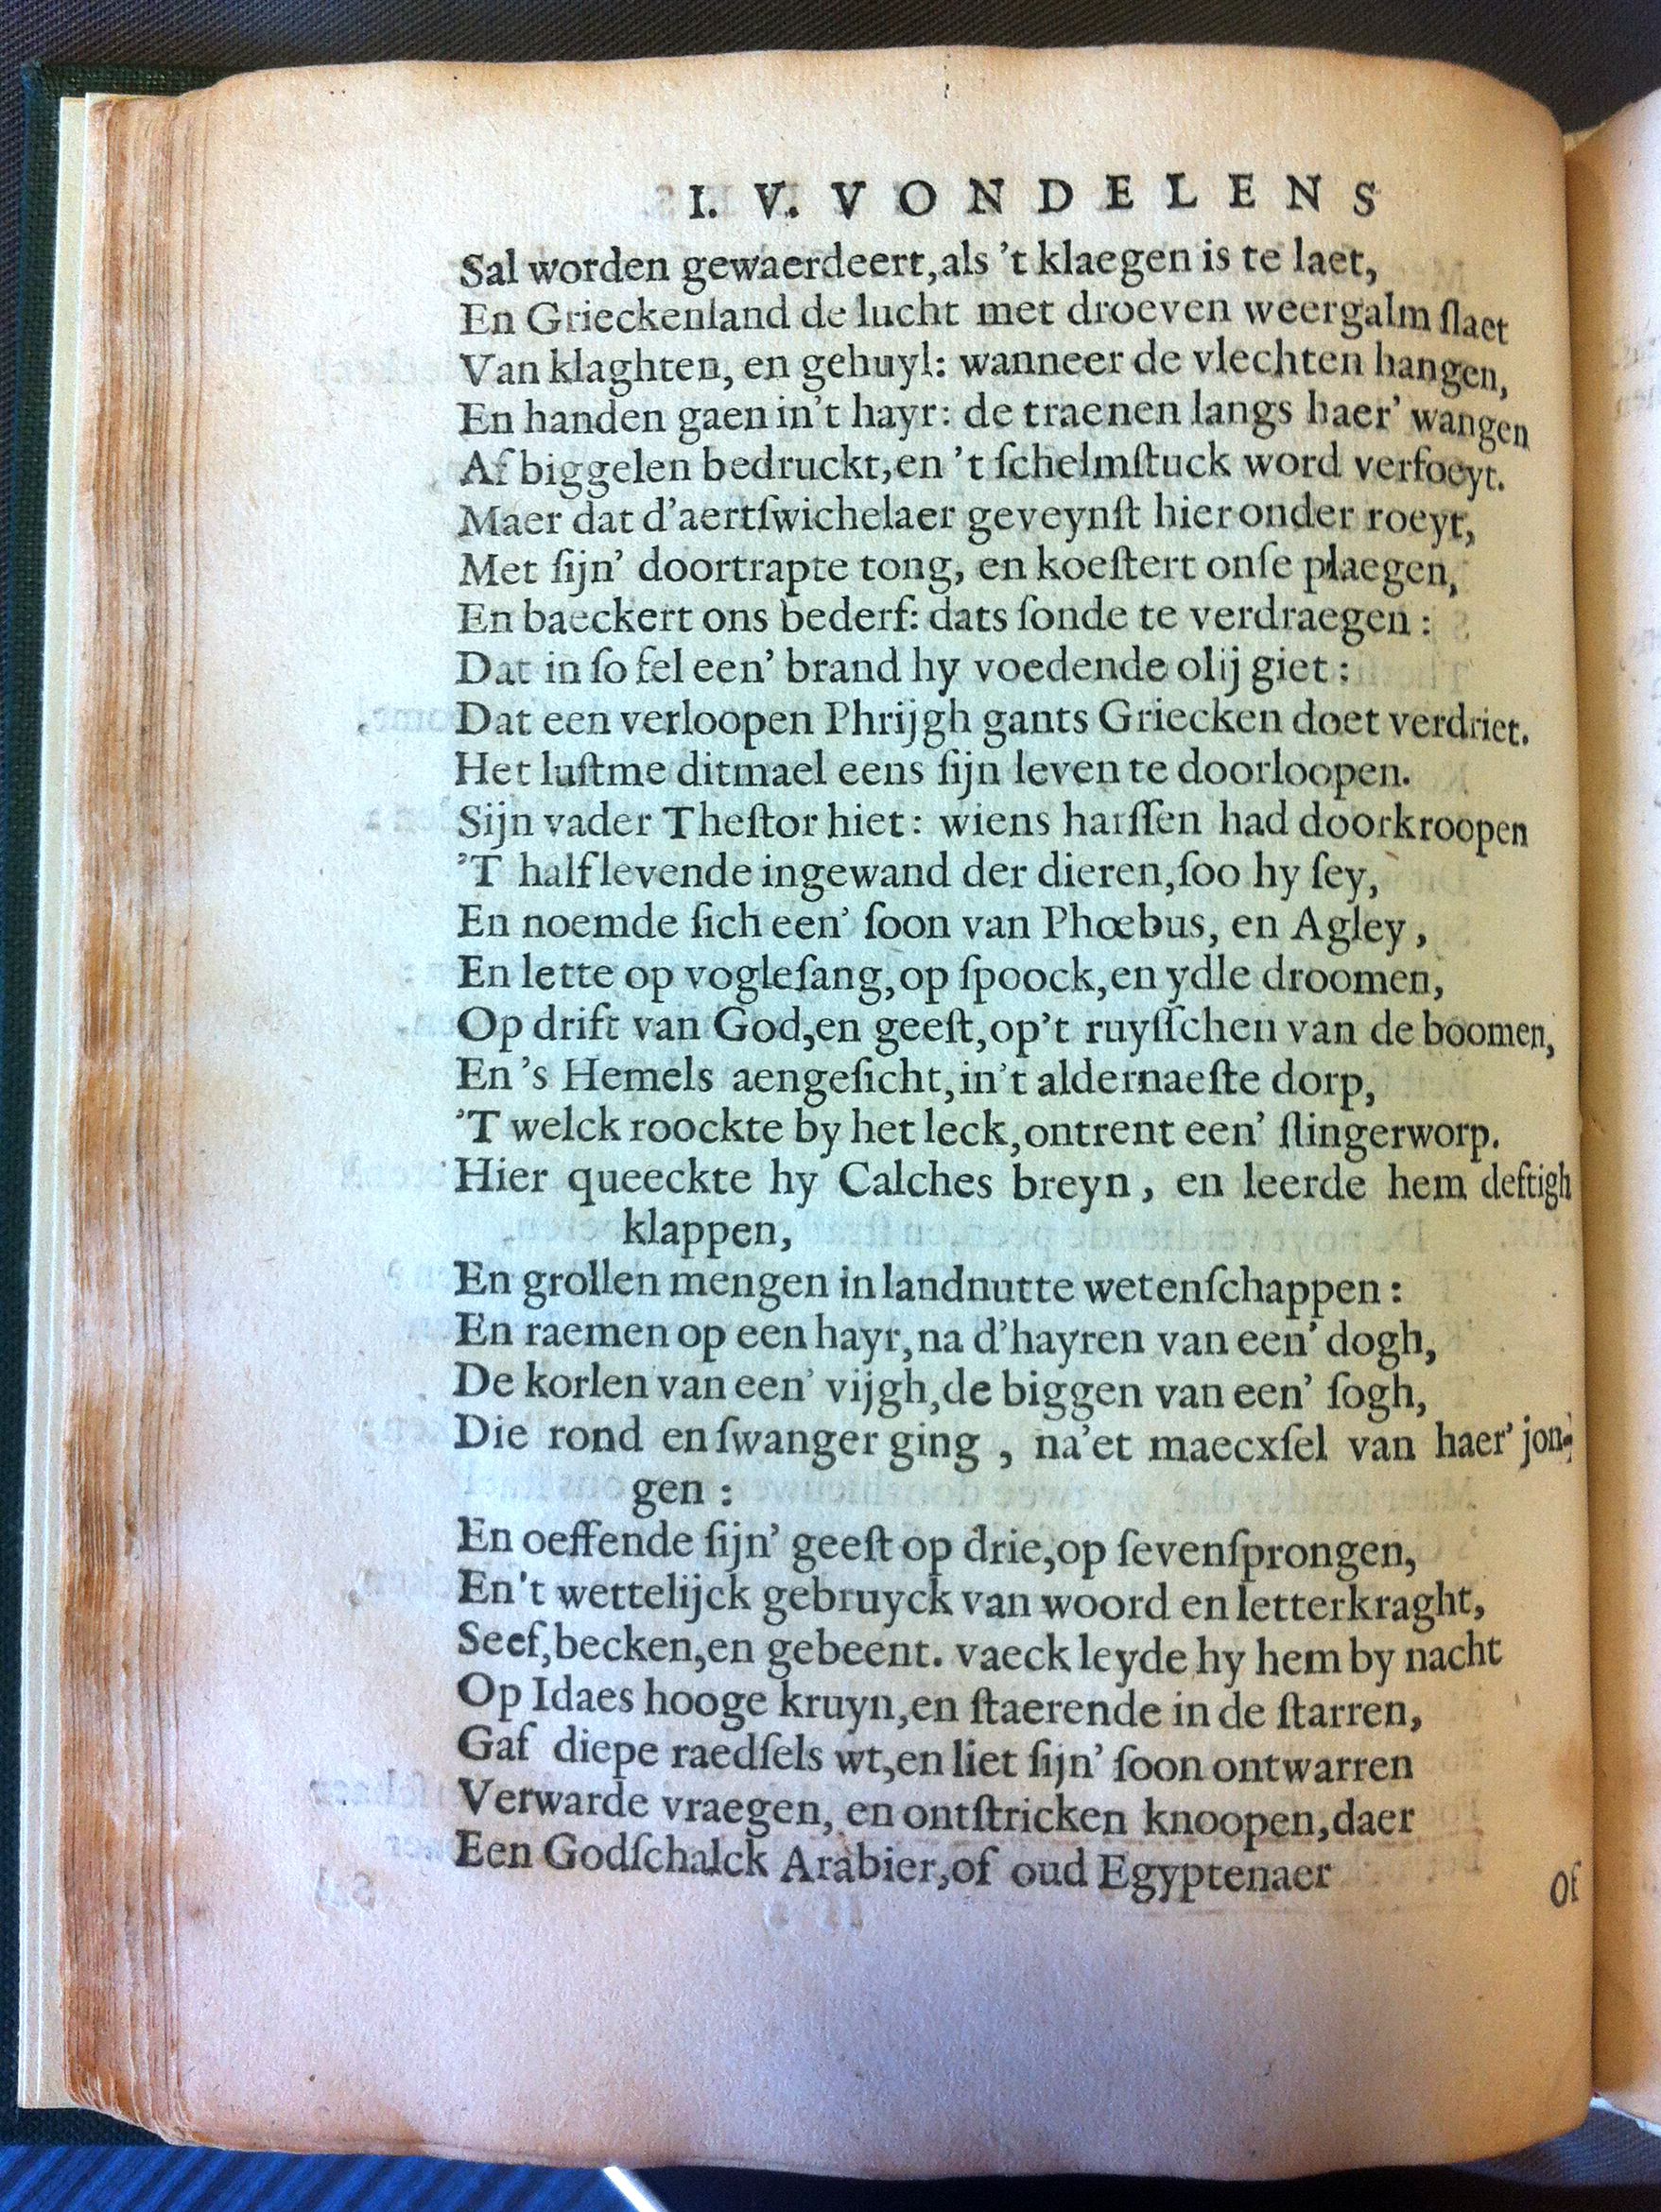 I. V. VONDELENS
Sal worden gewaerdeert,als 't klaegen is te laet,
En Grieckenland de lucht met droeven weergalm ſlaet
Van klaghten, en gehuyl: wanneer de vlechten hangen,
En handen gaen in't hayr: de traenen langs haer' wangen
Af biggelen bedruckt,en 't ſchelmſtuck word verfoeyt.
Maer dat d'aertſwichelaer geveynſt hier onder roeyt,
Met ſijn' doortrapte tong, en koeſtert onſe plaegen,
En baeckert ons bederf: dats ſonde te verdraegen:
Dat in ſo fel een' brand hy voedende olij giet:
Dat een verloopen Phrijgh gants Griecken doet verdriet.
Het luſtme ditmael eens ſijn leven te doorloopen.
Sijn vader Theſtor hiet: wiens harſſen had doorkroopen
'T half levende ingewand der dieren,ſoo hy ſey,
En noemde ſich een' ſoon van Phœbus, en Agley,
En lette op vogleſang,op ſpoock,en ydle droomen,
Op drift van God,en geeſt,op't ruyſſchen van de boomen,
En 's Hemels aengeſicht,in't aldernaeſte dorp,
'T welck roockte by het leck,ontrent een' ſlingerworp.
Hier queeckte hy Calches breyn, en leerde hem deftigh
klappen,
En grollen mengen in landnutte wetenſchappen:
En raemen op een hayr,na d'hayren van een' dogh,
De korlen van een' vijgh,de biggen van een' ſogh,
Die rond en ſwanger ging, na'et maecxſel van haer' jon-
gen:
En oeffende ſijn' geeſt op drie,op ſevenſprongen,
En't wettelijck gebruyck van woord en letterkraght,
Seef,becken,en gebeent. vaeck leyde hy hem by nacht
Op Idaes hooge kruyn,en ſtaerende in de ſtarren,
Gaf diepe raedſels wt,en liet ſijn' ſoon ontwarren
Verwarde vraegen, en ontſtricken knoopen,daer
Een Godſchalck Arabier,of oud Egyptenaer
Of